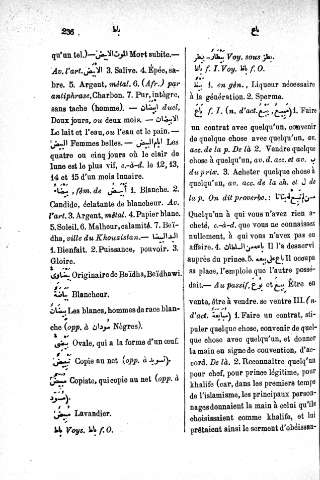 236 باط باع
qu'un tel.) — الموت الابيض Mort subite. —
Av. l'art. الابيض 3. Salive. 4. Épée, sa-
bre. 5. Argent, métal. 6. (Afr.) par
antiphrase, Charbon. 7. Pur, intègre,
sans tache (homme). — الابيضان duel,
Doux jours, ou deux mois. — الابيضان
Le lait et l'eau, ou l'eau et le pain. —
البيض Femmes belles. — ايام البيض Les
quatre ou cinq jours où le clair de
lune est le plus vif, c.-à-d. le 12, 13,
14 et 15 d'un mois lunaire.
بيضاء, fém. de ابيض. 1. Blanche. 2.
Candide, éclatante de blancheur. Av.
l'art. 3. Argent, métal. 4. Papier blanc.
5. Soleil. 6. Malheur, calamité. 7. Beï-
dha, ville du Khouzistan. — اليد البيضاء
1. Bienfait. 2. Puissance, pouvoir. 3.
Gloire.
بيضاوي Originaire de Beïdha, Beïdhawi.
Blancheur.
بيضان Les blanches, hommes de race blan-
che (opp. à سودان Nègres).
بيضي Ovale, qui a la forme d'un œuf.
تبييض Copie au net (opp. à تسويد).
مبيض Copiste, qui copie au net (opp. à
مسود).
مبيض Lavandier.
باط Voyz. باط f. O.
Voy. sous بظر.
باظ f. I. Voy. باظ f. O.
بيظ 1. en gén., Liqueur nécessaire
à la génération. 2. Sperma.
باع f. I. (n. d'act. بيع, مبيع) 1. Faire
un contrat avec quelqu'un, convenir
de quelque chose avec quelqu'un, av.
acc. de la p. De là 2. Vendre quelque
chose à quelqu'un, av. d. acc. et av. ب
du prix. 3. Acheter quelque chose à
quelqu'un, av. acc. de la ch. et ل de
la p. On dit proverbe.:
Quelqu'un à qui vous n'avez rien a-
cheté, c.-à-d. que vous ne connaissez
nullement, à qui vous n'avez pas eu
affaire. 4. باعه من السلطان Il l'a desservi
auprès du prince. 5. باع على بيعه Il occupa
sa place, l'emploi que l'autre possé-
dait. — Au passif, بيع et بوع Être en
vente, être à vendre, se vendre III. (n.
d'act. مبايعة) 1. Faire un contrat, sti-
puler quelque chose, convenir de quel-
que chose avec quelqu'un, et donner
la main en signe de convention, d'ac-
cord. De là 2. Reconnaître quelqu'un
pour chef, pour prince légitime, pour
khalife (car, dans les premiers temps
de l'islamisme, les principaux person-
nages donnaient la main à celui qu'ils
choisissaient comme khalife, et lui
prêtaient ainsi le serment d'obéissan-